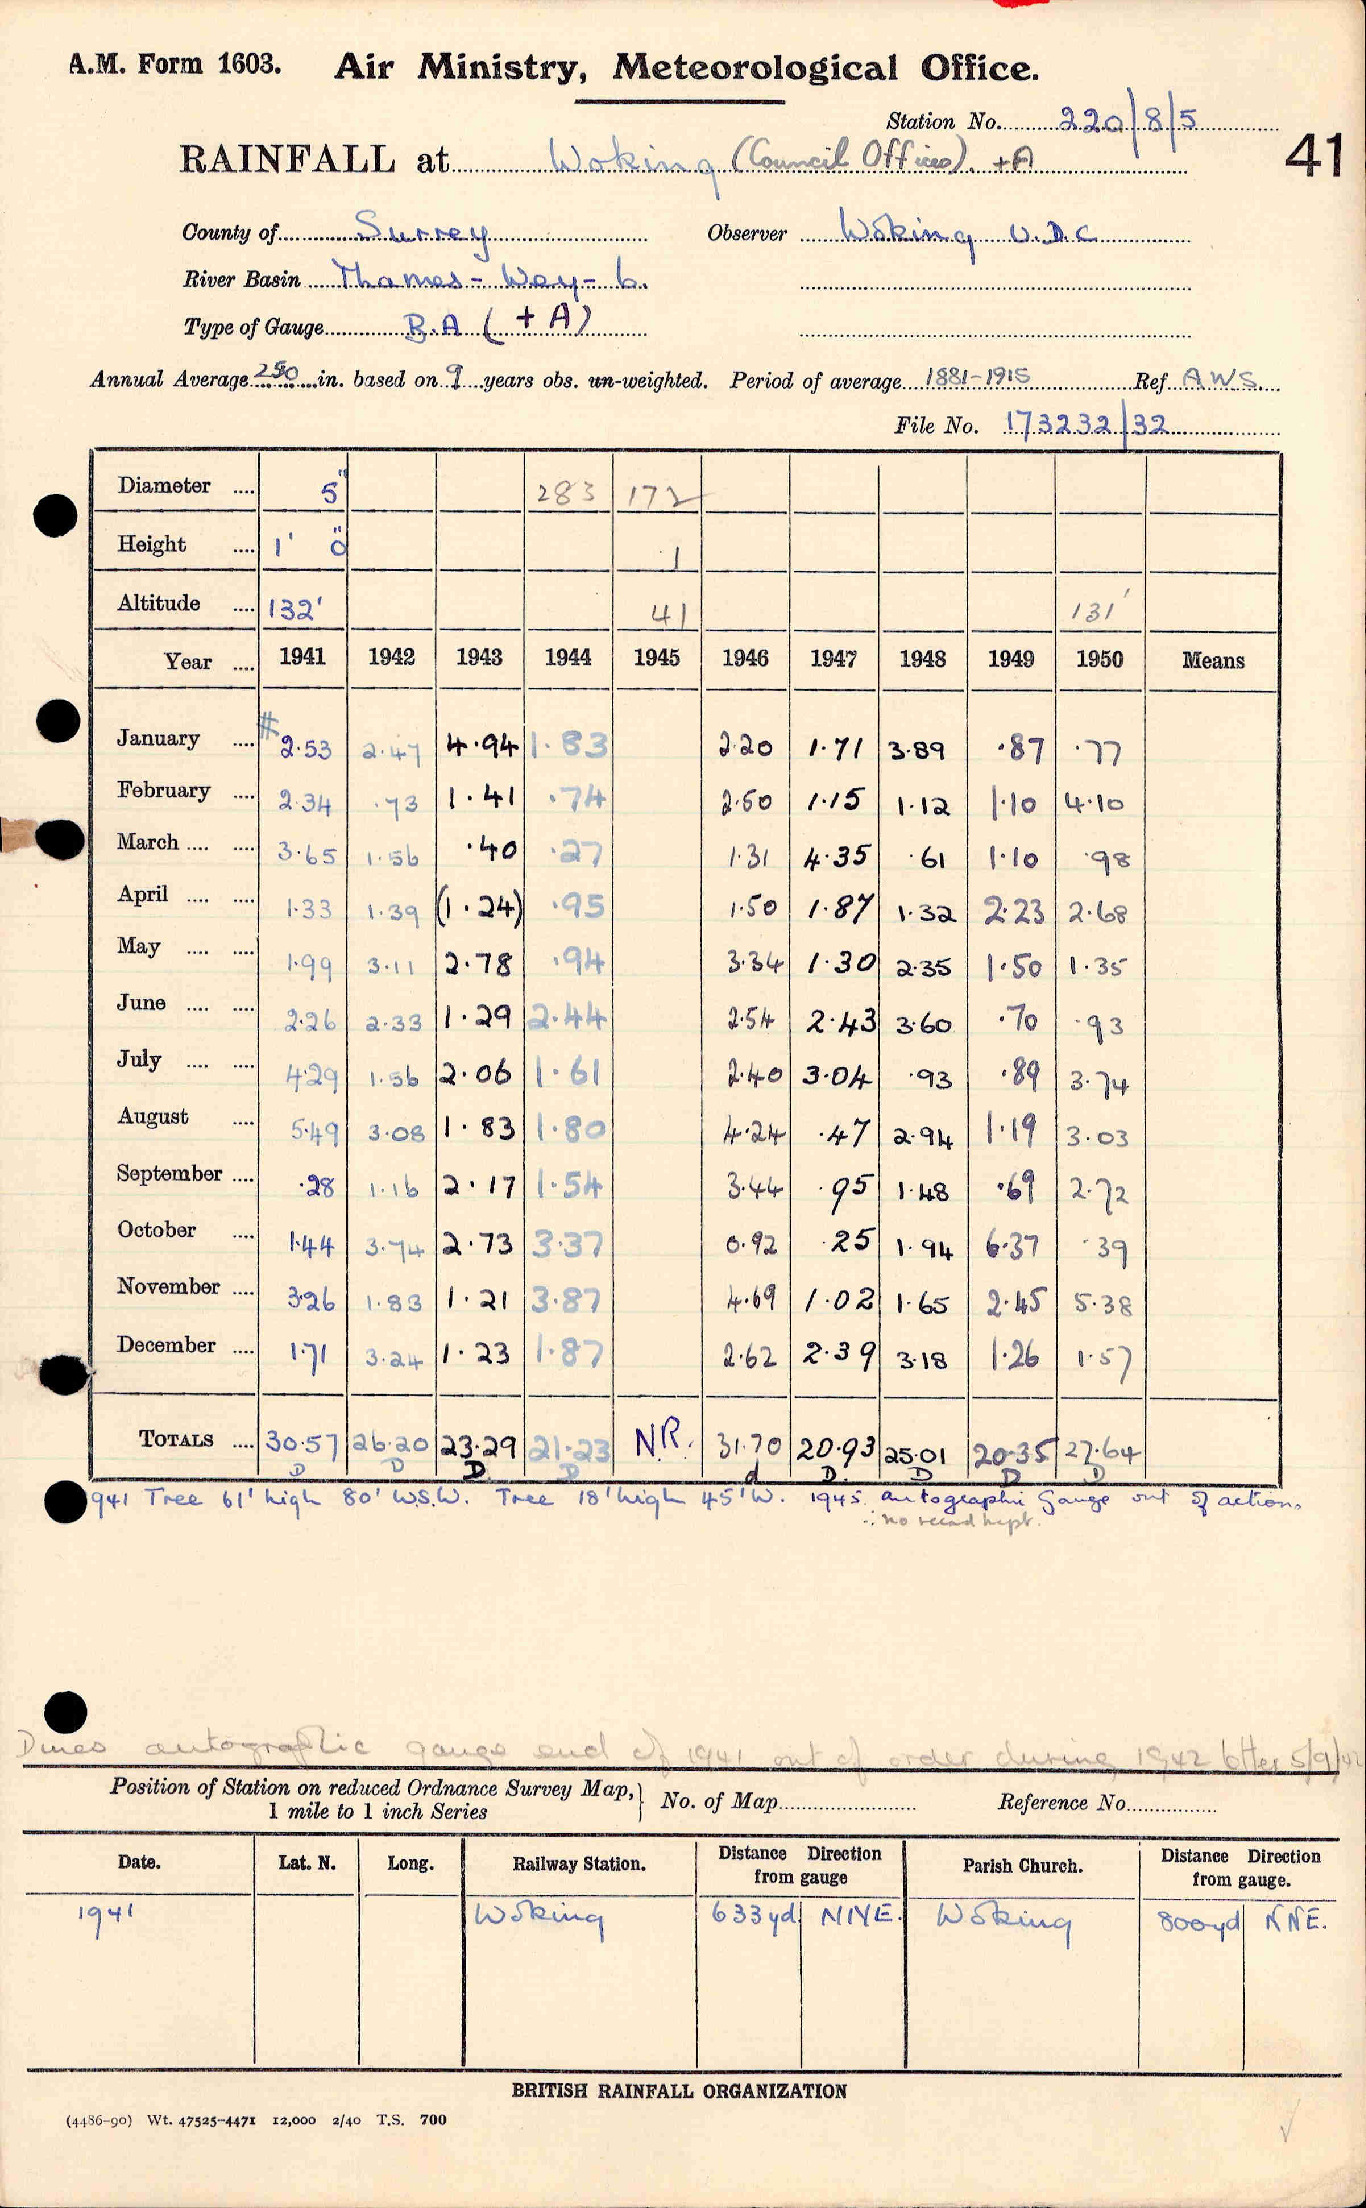 A.M. Form 1603. Air Ministry, Meteorological Office.
Station No. 220/8/5
41
RAINFALL at Woking (Council Offices). +A
County of Surrey Observer Woking U.D.C
River Basin Thames - Wey - b.
Type of Gauge B.A (+A)
Annual Average 250 in. based on 9 years obs. un-weighted. Period of average 1881-1915 Ref A.W.S.
File No. 173232/32
Diameter .... 5" 283 172
Height .... 1' 0" 1
Altitude .... 132' 41 131'
Year .... 1941 1942 1943 1944 1945 1946 1947 1948 1949 1950 Means
January .... # 2.53 2.47 4.94 1.83 2.20 1.71 3.89 .87 .77
February .... 2.34 .73 1.41 .74 2.50 1.15 1.12 1.10 4.10
March .... .... 3.65 1.56 .40 .27 1.31 4.35 .61 1.10 .98
April .... .... 1.33 1.39 (1.24) .95 1.50 1.87 1.32 2.23 2.68
May .... .... 1.99 3.11 2.78 .94 3.34 1.30 2.35 1.50 1.35
June .... .... 2.26 2.33 1.29 2.44 2.54 2.43 3.60 .70 .93
July .... .... 4.29 1.56 2.06 1.61 2.40 3.04 .93 .89 3.74
August .... 5.49 3.08 1.83 1.80 4.24 .47 2.94 1.19 3.03
September .... .28 1.16 2.17 1.54 3.44 .95 1.48 .69 2.72
October .... 1.44 3.74 2.73 3.37 0.92 .25 1.94 6.37 .39
November .... 3.26 1.83 1.21 3.87 4.69 1.02 1.65 2.45 5.38
December .... 1.71 3.24 1.23 1.87 2.62 2.39 3.18 1.26 1.57
TOTALS .... 30.57 26.20 23.29 21.23 N.R. 31.70 20.93 25.01 20.35 27.64
D D D D d D. D D D
941 Tree 61' high 80' W.S.W. Tree 18' high 45' W. 1945. autographic Gauge out of action.
∴ no record kept.
Dines autographic gauge end of 1941 out of order during 1942 letter 5/9/42
Position of Station on reduced Ordnance Survey Map, } No. of Map Reference No.
1 mile to 1 inch Series
Date. Lat. N. Long. Railway Station. Distance Direction from gauge Parish Church. Distance Direction from gauge.
1941 Woking 633yd NNE. Woking 800yd NNE.
BRITISH RAINFALL ORGANIZATION
(4486-90) Wt. 47525-4471 12,000 2/40 T.S. 700